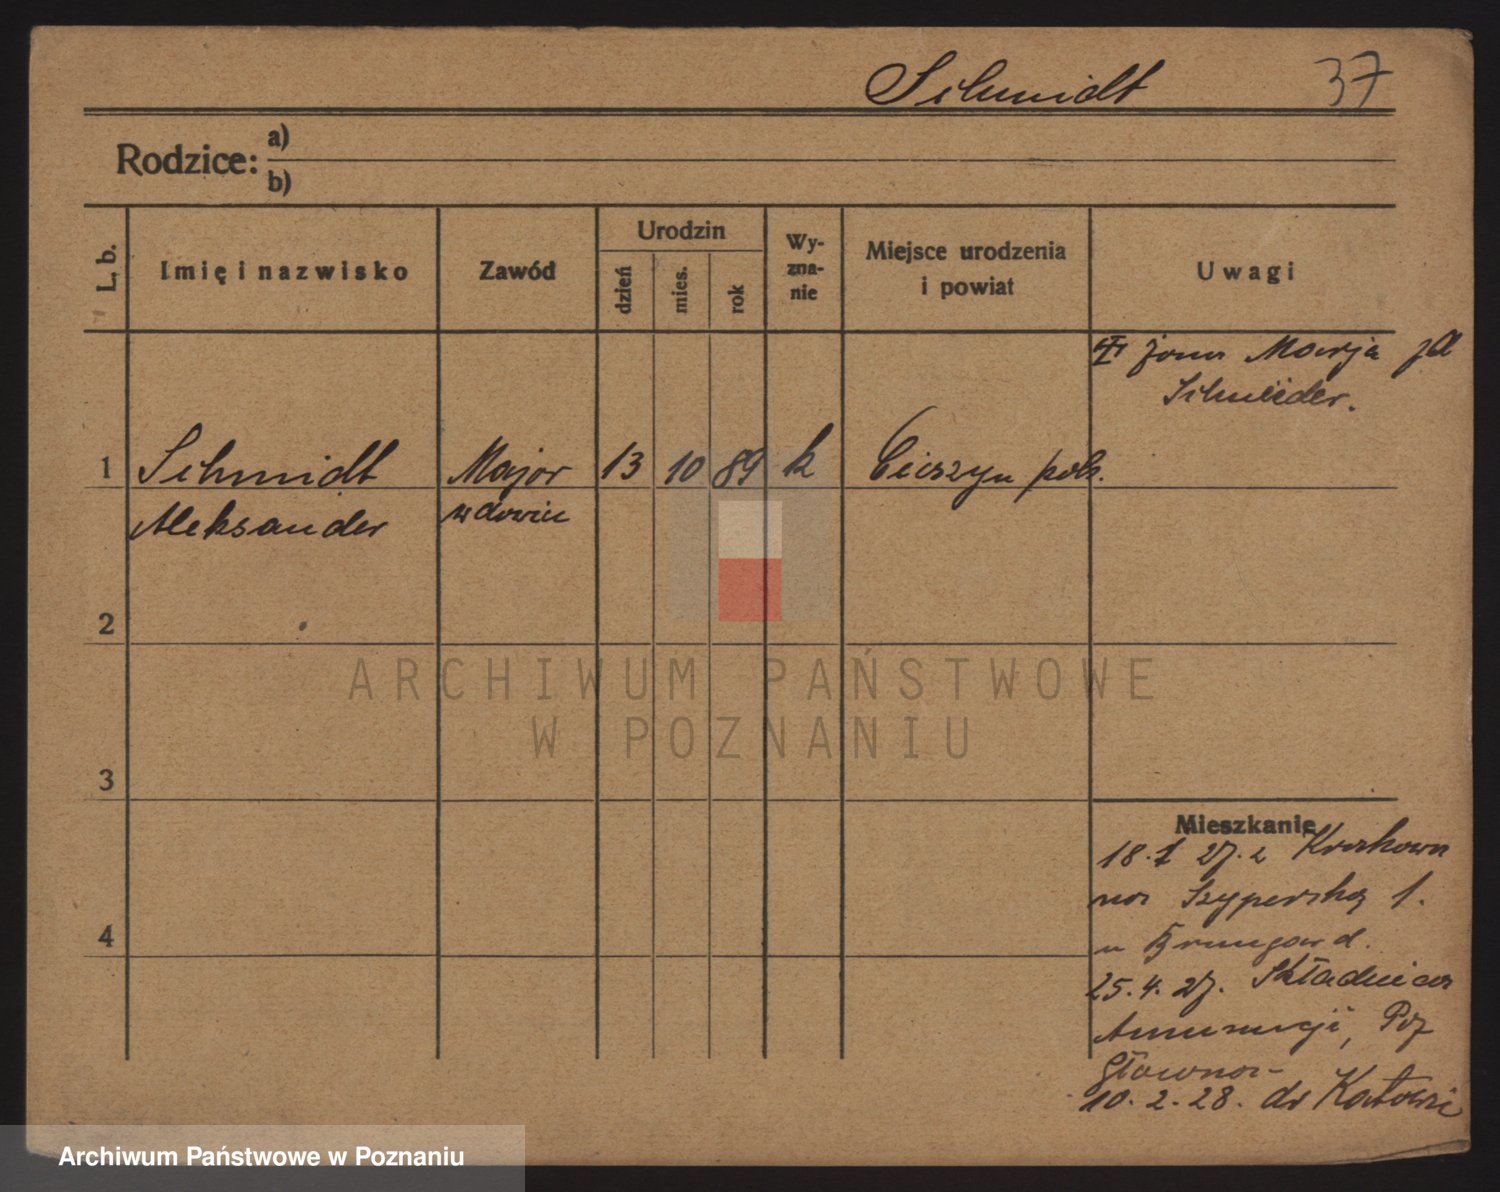 Schmidt 37
Rodzice: a)
b)
L. b. Imię i nazwisko Zawód Urodzin Wy- Miejsce urodzenia Uwagi
dzień mies. rok zna- i powiat
nie
żona Marja
Schneider.
1 Schmidt Major 13 10 89 k Cieszyn pols.
Aleksander wdowiec
2
ARCHIWUM PAŃSTWOWE
W POZNANIU
3
Mieszkanie
18.1 27. z Krakowa
na Szyperską 1.
4
u
25.4.27. Składnica
Amunicji, Poz
Główna-
10.2.28. do
Archiwum Państwowe w Poznaniu